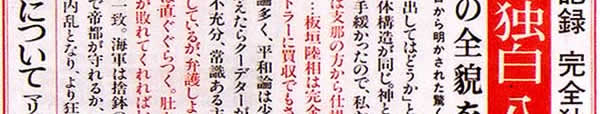 記録 完全
独白 八
の全貌を
から明かされた驚く
出してはどうか」と
体構造が同じ神と
手緩かったので、私
は支那の方から仕掛
…板垣陸相は完全
トラーに買収でもさ
論多く、平和論は少
えたらクーデターが
不充分、常識ある主
しているが弁護しよ
直ぐぐらつく。肚
が敗れてくれれば
一致。海軍は捨鉢の
で帝都が守れるか、
内乱となり、より狂
について マリ